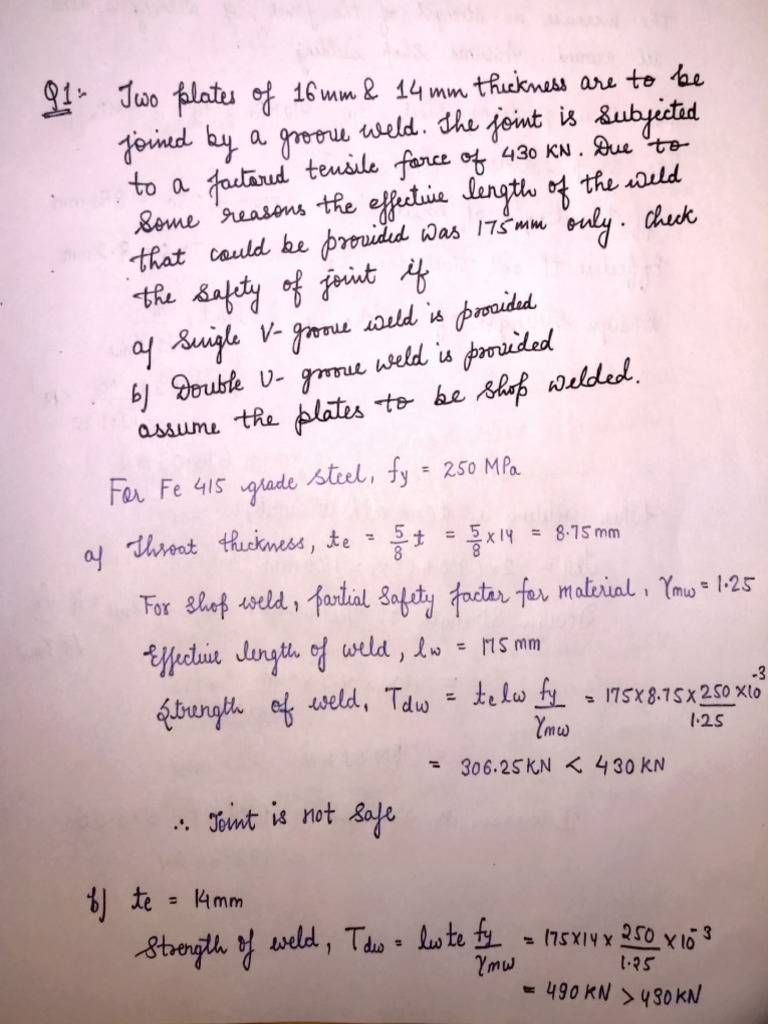 Q1:- Two plates of 16mm & 14mm thickness are to be
joined by a groove weld. The joint is subjected
to a factored tensile force of 430 KN. Due to
some reasons the effective length of the weld
that could be provided was 175mm only. Check
the safety of joint if
a) Single V-groove weld is provided
b) Double U-groove weld is provided
assume the plates to be shop welded.
For Fe 415 grade steel, fy = 250 MPa
a) Throat thickness, te = 5/8 t = 5/8 x 14 = 8.75mm
For shop weld, partial safety factor for material, γmw = 1.25
Effective length of weld, lw = 175mm
Strength of weld, Tdw = te lw fy/γmw = 175x8.75x250/1.25 x10^-3
= 306.25KN < 430KN
∴ Joint is not safe
b) te = 14mm
Strength of weld, Tdw = lw te fy/γmw = 175x14x 250/1.25 x10^-3
= 490KN > 430KN